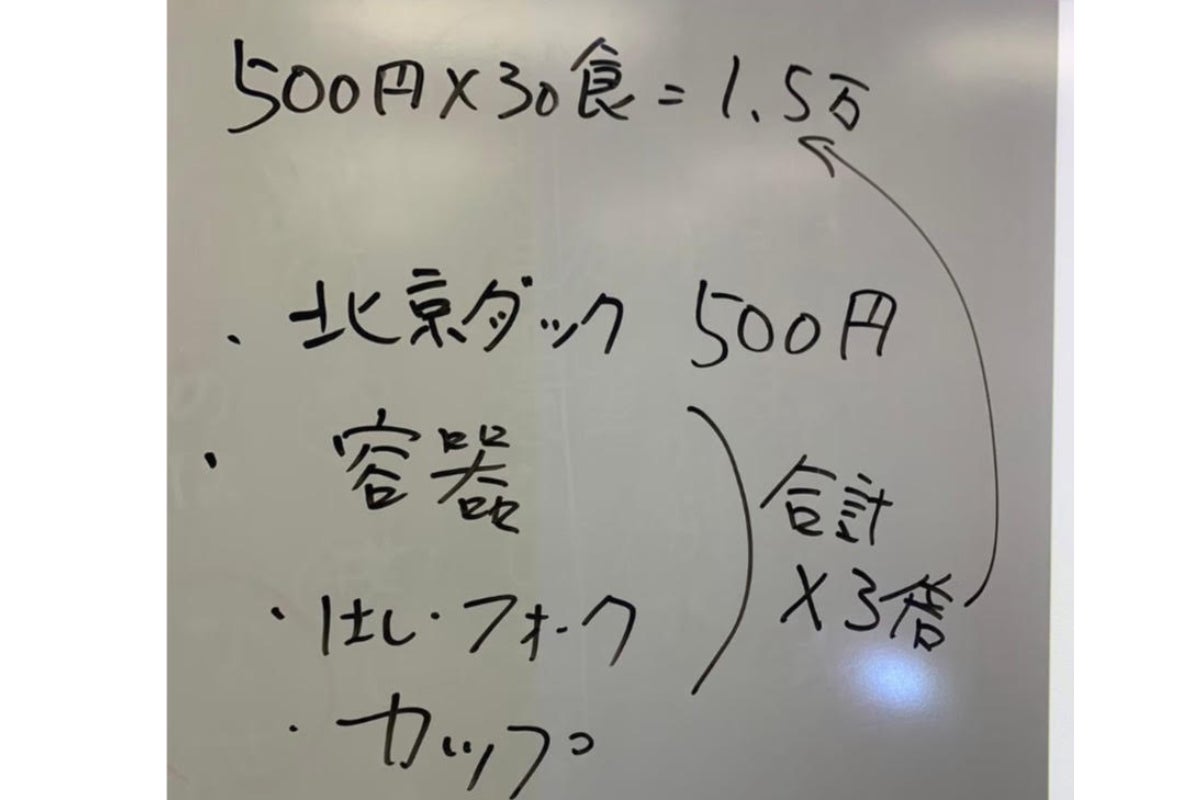 500円×30食=1.5万
・北京ダック 500円
・容器
合計
×3倍
・はし・フォーク
・カップ